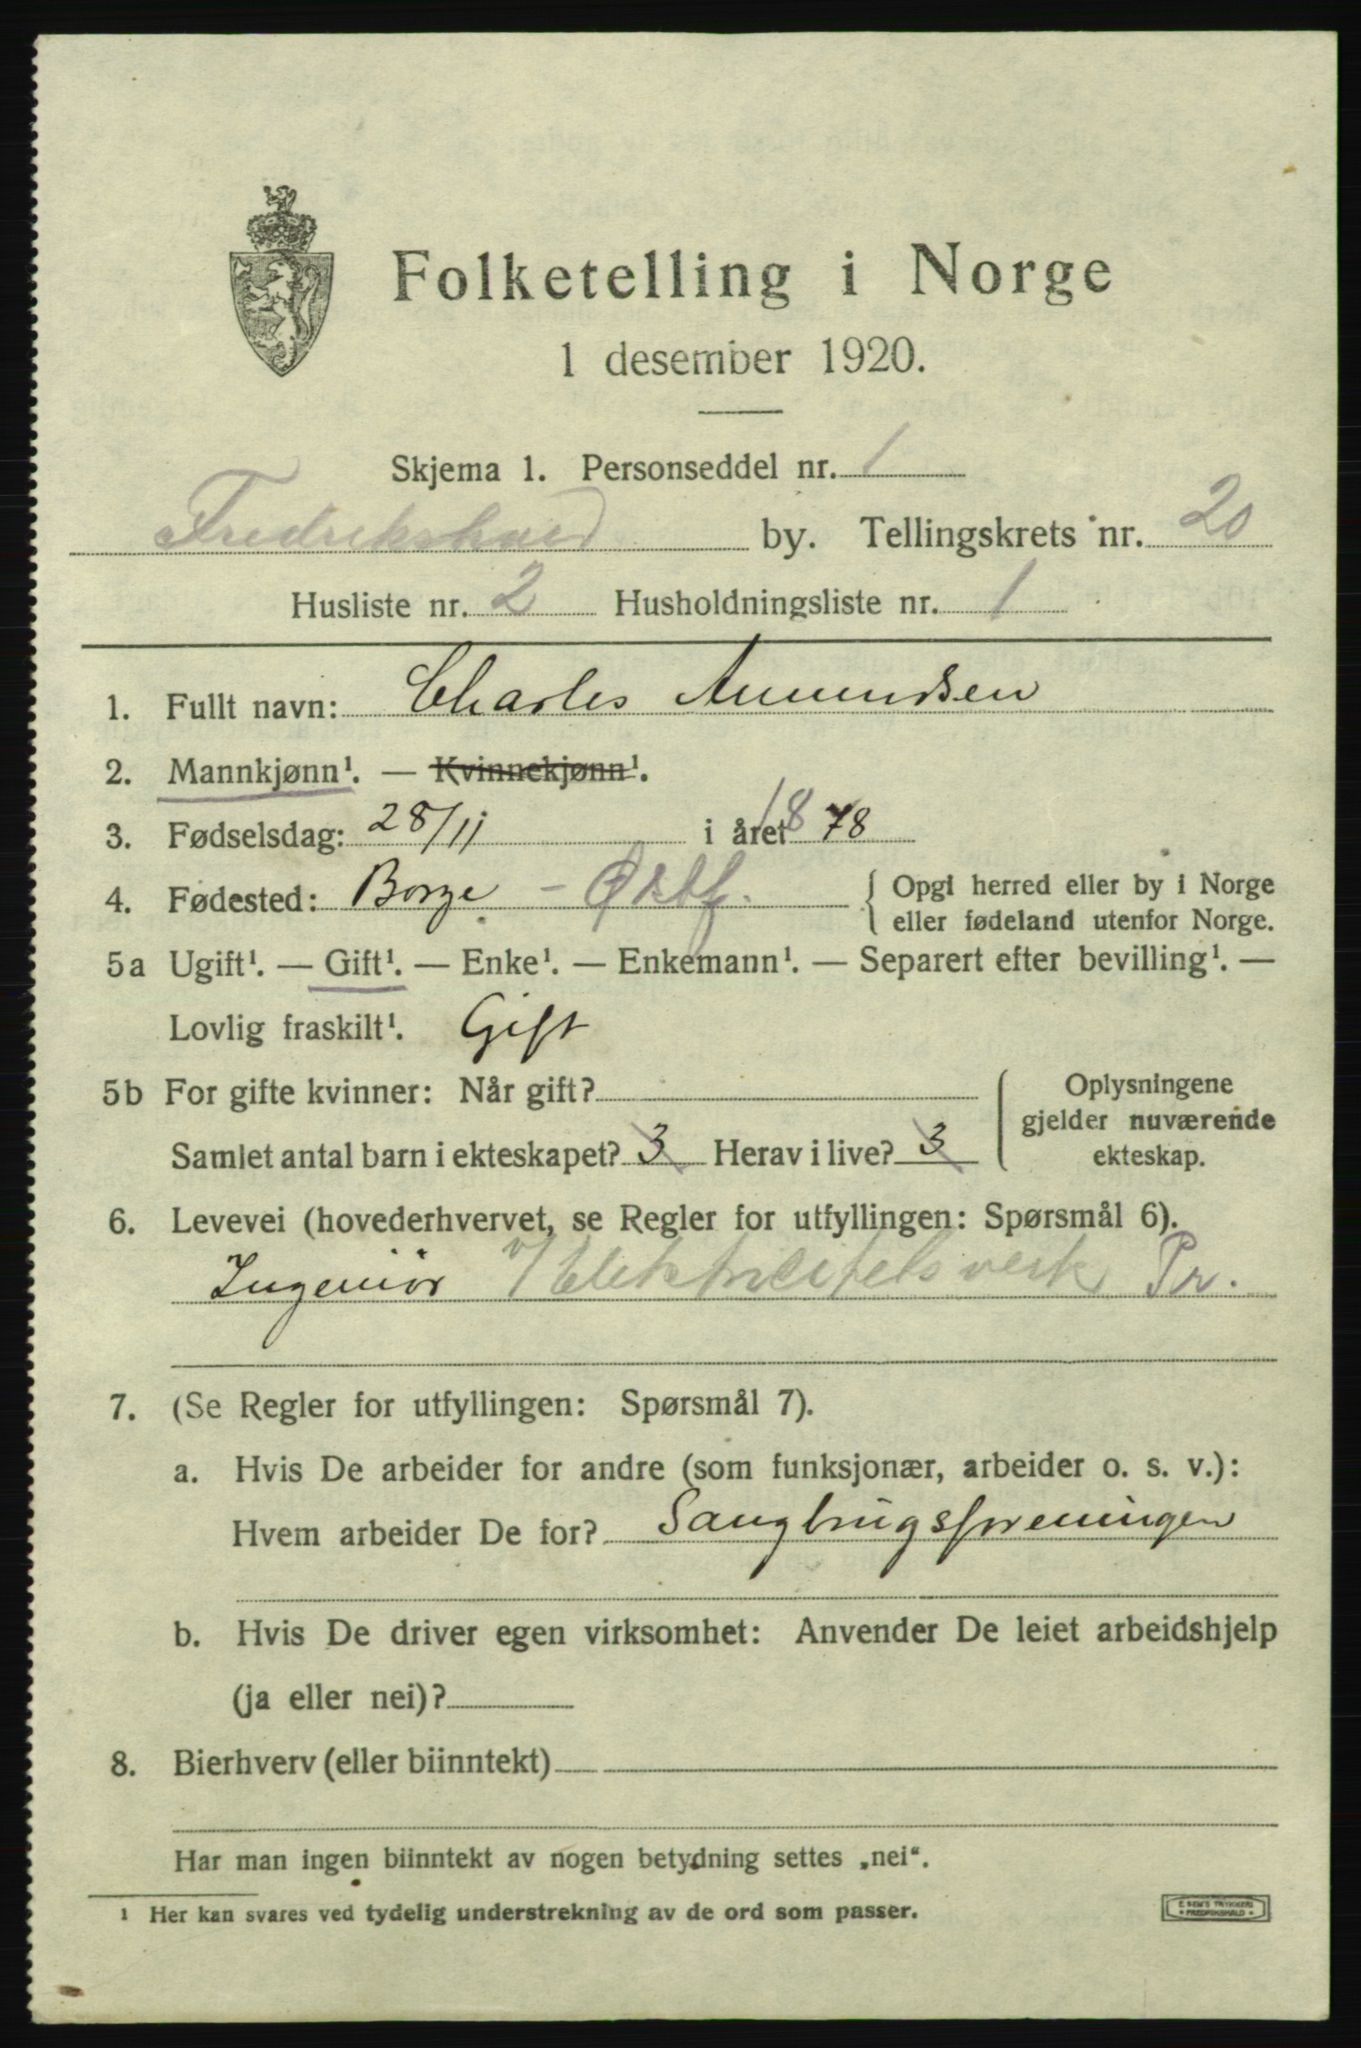 Folketelling i Norge
1 desember 1920.
Skjema 1. Personseddel nr. 1
Fredrikshald by. Tellingskrets nr. 20
Husliste nr. 2 Husholdningsliste nr. 1
1. Fullt navn: Charles Amundsen
2. Mannkjønn¹. — Kvinnekjønn¹.
3. Fødselsdag: 28/11 i året 1878
4. Fødested: Borge - Østf. { Opgi herred eller by i Norge
eller fødeland utenfor Norge.
5a Ugift¹. — Gift¹. — Enke¹. — Enkemann¹. — Separert efter bevilling¹. —
Lovlig fraskilt¹. Gift
5b For gifte kvinner: Når gift?
Samlet antal barn i ekteskapet? 3 Herav i live? 3
Oplysningene
gjelder nuværende
ekteskap.
6. Levevei (hovederhvervet, se Regler for utfyllingen: Spørsmål 6).
Ingeniør v/ Elektricitetsverk Pr.
7. (Se Regler for utfyllingen: Spørsmål 7).
a. Hvis De arbeider for andre (som funksjonær, arbeider o. s. v.):
Hvem arbeider De for? Saugbrugsforeningen
b. Hvis De driver egen virksomhet: Anvender De leiet arbeidshjelp
(ja eller nei)?
8. Bierhverv (eller biinntekt)
Har man ingen biinntekt av nogen betydning settes „nei“.
¹ Her kan svares ved tydelig understrekning av de ord som passer.
E. SEM'S TRYKKERI
* FREDRIKSHALD *